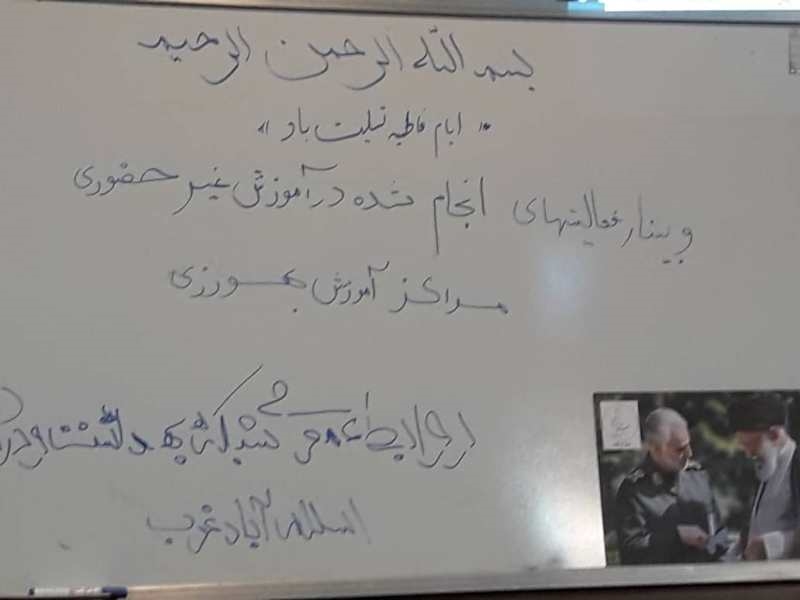 بسم الله الرحمن الرحیم
« ایام فاطمیه تسلیت باد »
وبینار فعالیتهای انجام شده در آموزش غیر حضوری
مراکز آموزش بهورزی
روابط عمومی شبکه بهداشت و در
اسلام آباد غرب